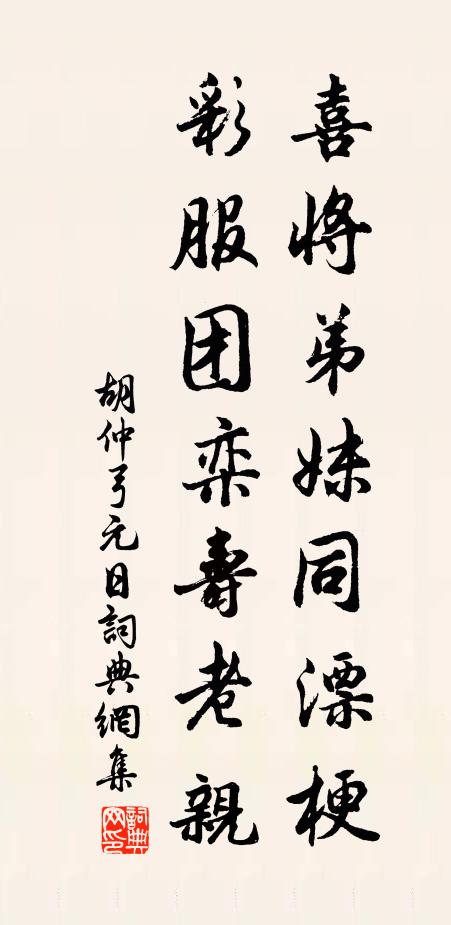 喜將弟妹同漂梗
彩服团栾壽老親
胡仲弓元日詞典網集
詞典网印